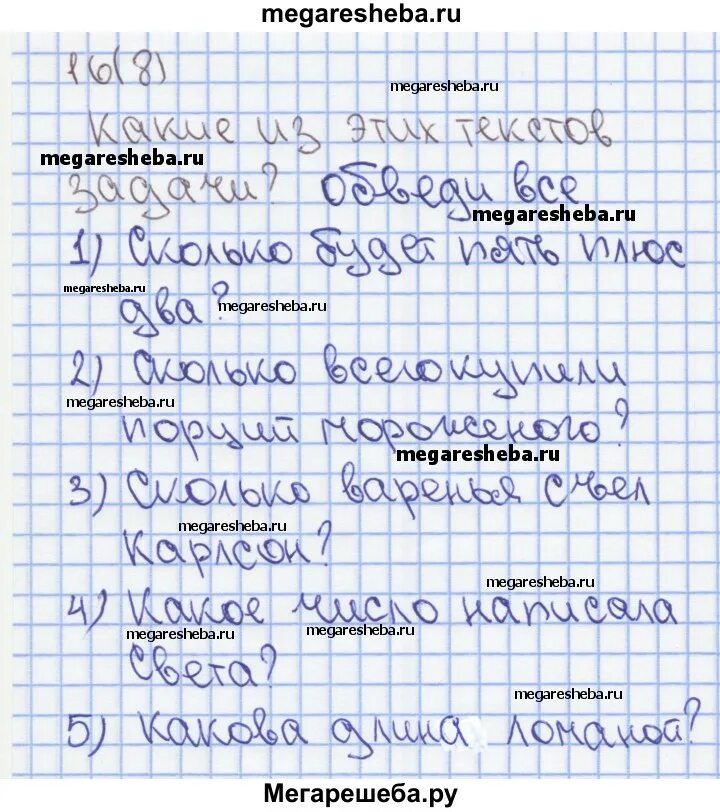 megaresheba.ru
16(8)
megaresheba.ru
Какие из этих текстов
megaresheba.ru
задачи? обведи все
megaresheba.ru
1) Сколько будет пять плюс
megaresheba.ru
два?
megaresheba.ru
2) Сколько всего купили
megaresheba.ru
порций мороженого?
megaresheba.ru
3) Сколько варенья съел
megaresheba.ru
Карлсон?
megaresheba.ru
4) Какое число написала
megaresheba.ru megaresheba.ru
Света?
megaresheba.ru
5) Какова длина ломаной?
Мегарешеба.ру